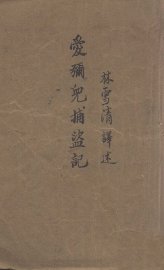 愛彌兒捕盜記
林雪清譯述